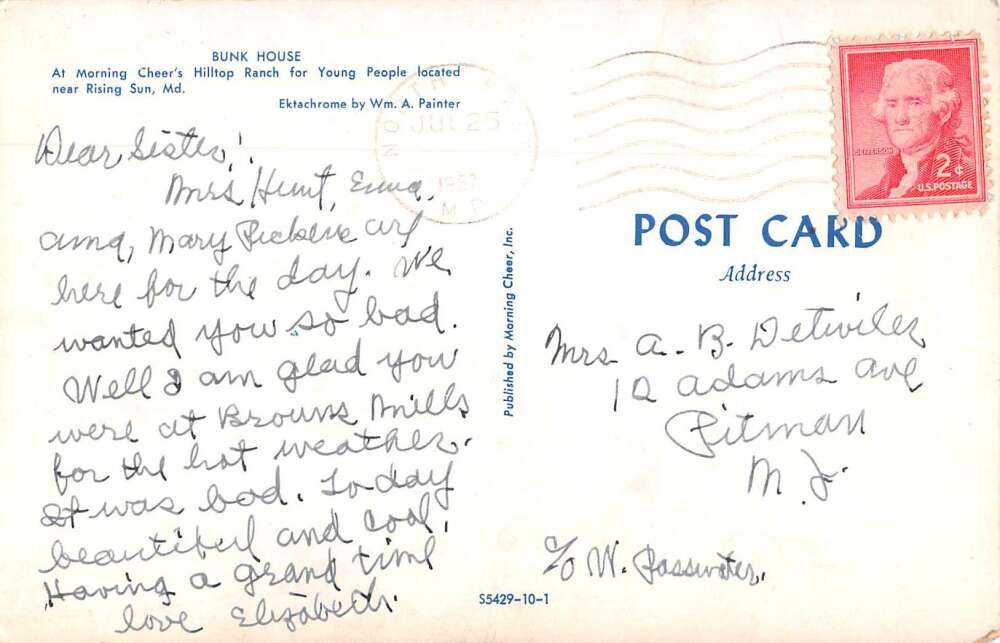 BUNK HOUSE
At Morning Cheer's Hilltop Ranch for Young People located
near Rising Sun, Md.
Ektachrome by Wm. A. Painter
Dear Sister!
Mrs Hunt, Emma,
Mary are
here for the day. We
wanted you so bad.
Well I am glad you
were at Browns Mills
for the hot weather.
It was bad. Today
beautiful and cool,
Having a grand time
love Elizabeth.
Published by Morning Cheer, Inc.
S5429-10-1
NORTH
JUL 25
1957
MD
JEFFERSON
2¢
U.S. POSTAGE
POST CARD
Address
Mrs A. B. Detwiler
12 Adams Ave
Pitman
N. J.
c/o W. Passwater.